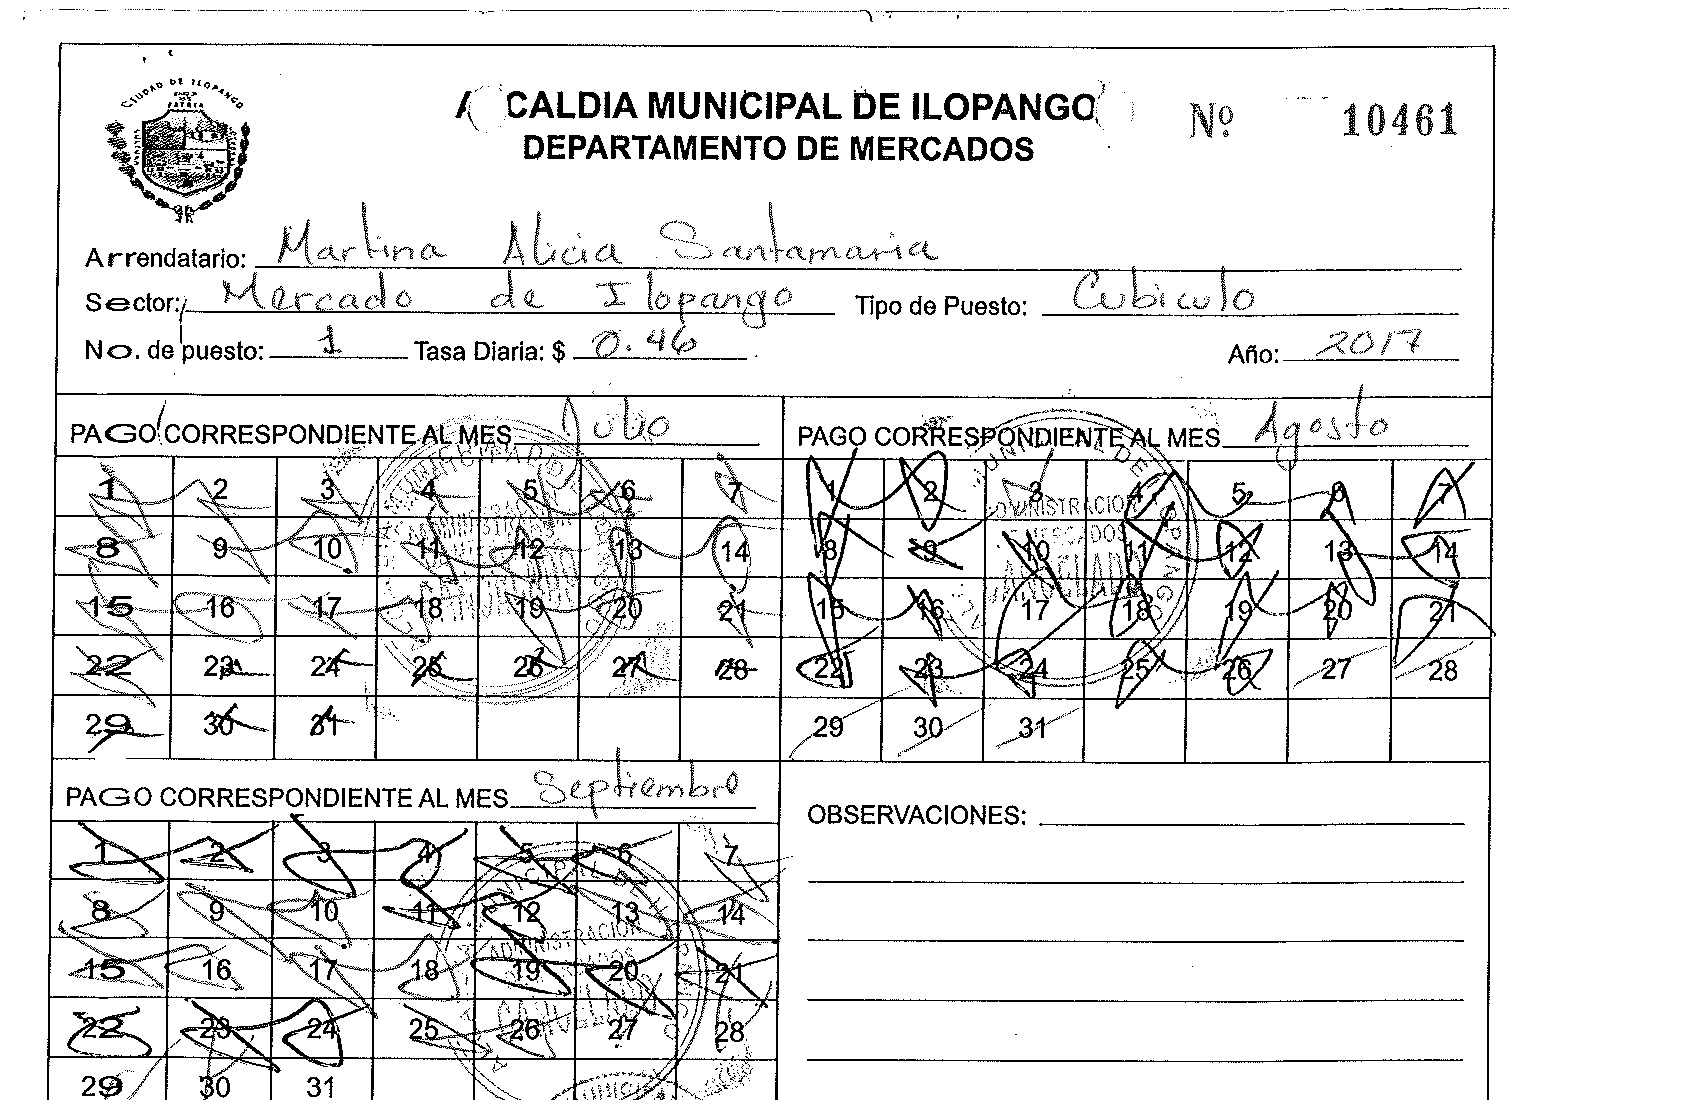 CIUDAD DE ILOPANGO
PATRIA
CALDIA MUNICIPAL DE ILOPANGO
DEPARTAMENTO DE MERCADOS
Nº 10461
Arrendatario: Martina Alicia Santamaria
Sector: Mercado de Ilopango Tipo de Puesto: Cubiculo
No. de puesto: 1 Tasa Diaria: $ 0.46 Año: 2017
PAGO CORRESPONDIENTE AL MES Julio
1 2 3 4 5 6 7
8 9 10 11 12 13 14
15 16 17 18 19 20 21
22 23 24 25 26 27 28
29 30 31
PAGO CORRESPONDIENTE AL MES Agosto
1 2 3 4 5 6 7
8 9 10 11 12 13 14
15 16 17 18 19 20 21
22 23 24 25 26 27 28
29 30 31
PAGO CORRESPONDIENTE AL MES Septiembre
1 2 3 4 5 6 7
8 9 10 11 12 13 14
15 16 17 18 19 20 21
22 23 24 25 26 27 28
29 30 31
OBSERVACIONES: